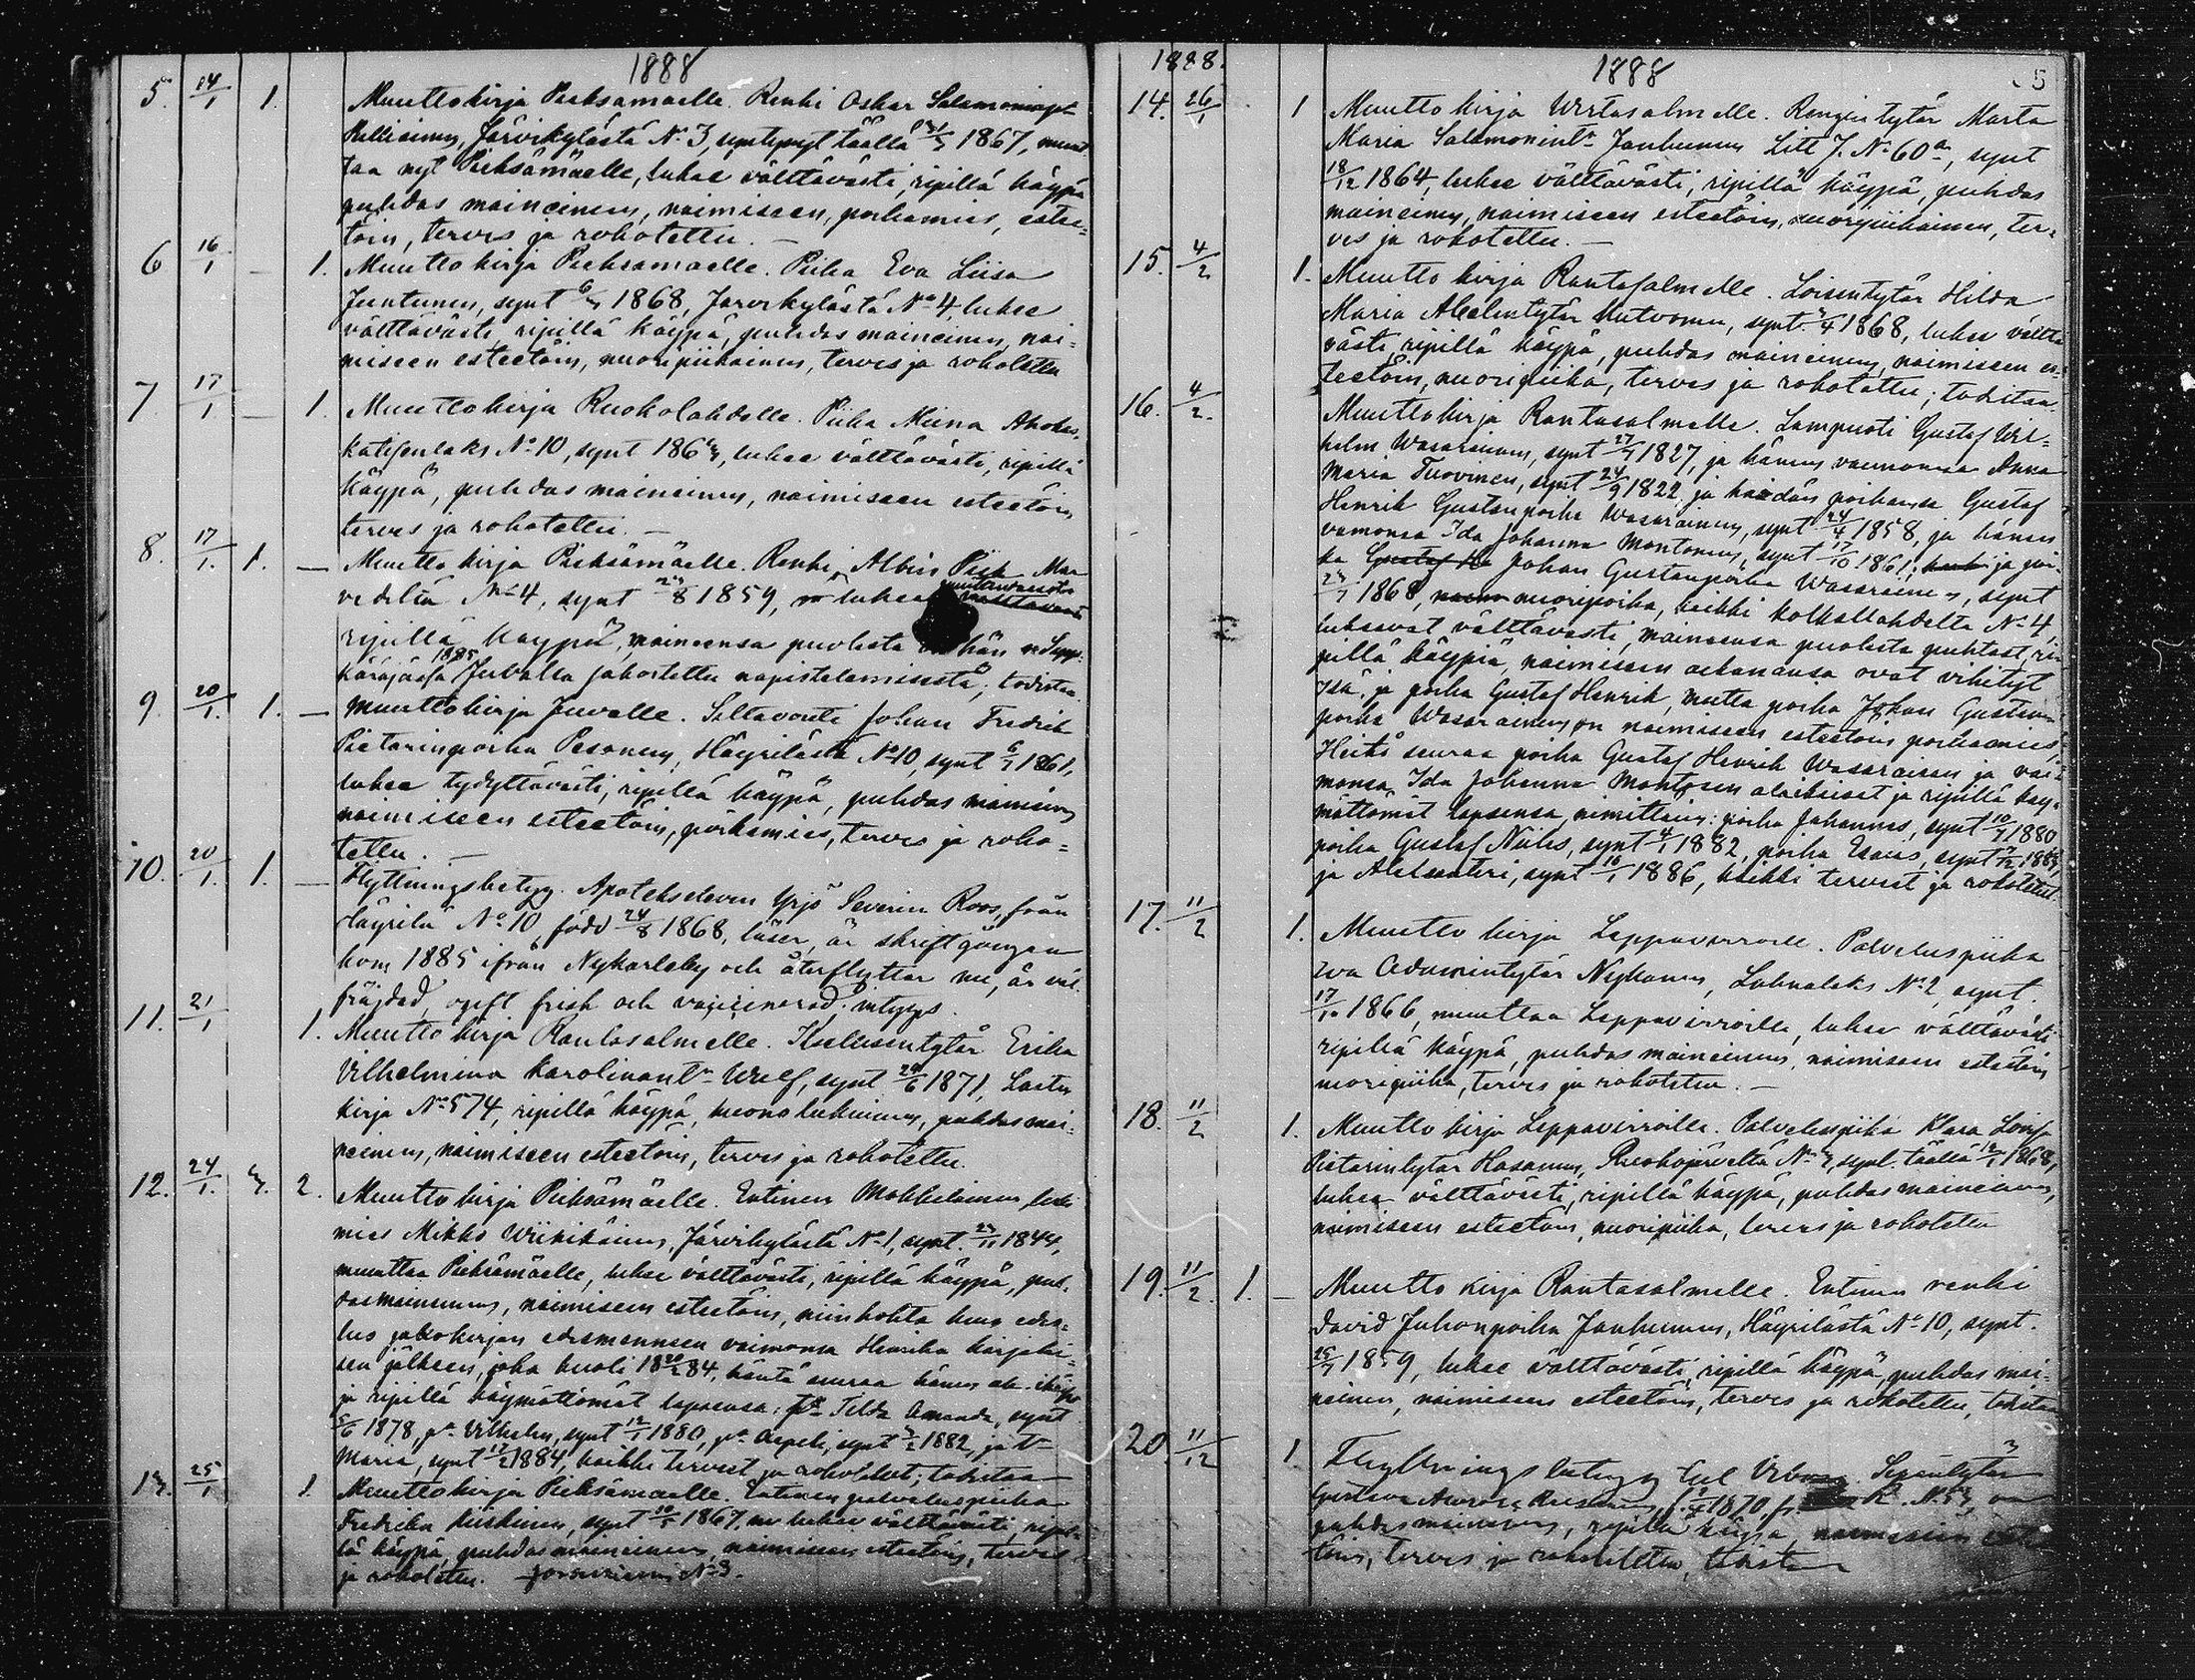 1888
5. 14/1 1. Muuttokirja Pieksämaelle. Renki Oskar Salomoninp.
Järvikylästä No 3, syntynyt täällä 1867, muut
taa nyt Pieksämäelle, lukee välttävästi, ripillä käypä
puhdas maineinen, naimiseen, poikamies, estee=
töin, terves ja rokotettu. —
6 16/1 — 1. Muuttokirja Pieksamaelle. Piika Eva Liisa
Juntunen, synt 1868, Jarvikylästä No 4 lukee
välttävästi, ripillä käypä, puhdas maineinen, nai=
miseen esteetöin, nuoripiikainen, terves ja rokotettu
7 17/1 — 1. Muuttokirja Ruokolahdelle. Piika Miina Ahokas,
No 10, synt lukee välttävästi, ripillä
käypä, puhdas maineinen, naimiseen esteetöin
terves ja rokotettu. —
8. 17/1. 1. — Muuttokirja Pieksämäelle. Renki Albin
No 4, synt 1859, lukee
ripillä käypä, maineensa puolesta hän
käräjässä 1885 Juvalla napistelemisestä; todistaa
9. 20/1. 1. — Muuttokirja Juvalle. Johan Fredrik
Pietarinpoika Pesonen, Häyrilästä No 10, synt 6/7 1861,
lukee tydyttävästi, ripillä käypä, puhdas maineinen
naimiseen esteetöin, poikamies, terves ja roko=
tettu. —
10. 20/1. 1. — Flyttningsbetyg. Apotekseleven Yrjö Severin Roos, från
Häyrilä No 10, född 24/8 1868, läser, är skriftgången
kom 1885 ifrån Nykarleby och återflyttar nu, är väl
fräjdad, ogift frisk och vaccinerad; intygas.
11. 21/1 1. Muuttokirja Rantasalmelle. Itsellisentytär Erika
Vilhelmina Karolinant. Wulf, synt 1871, Lasten
kirja No 574, ripillä käypä, huono lukuinen, puhdas mai=
neinen, naimiseen esteetöin, terves ja rokotettu.
12. 24/1. 3. 2. Muuttokirja Pieksämäelle. Entinen
mies Mikko Wiinikäinen, Järvikylästä No 1, synt. 1844,
muuttaa Pieksämäelle, lukee välttävästi, ripillä käypä, puh
dasmaineinen, naimiseen esteetöin,
jakokirjan edesmenneen vaimonsa Henrika
jälkeen, joka kuoli 1884, häntä seuraa hänen
ja ripillä käymättömät lapsensa: Tilda Amanda, synt
1878, p. Vilhelm, synt 1880, p. Aapeli, synt 1882, ja t.
Maria, synt 1884, kaikki terveet ja rokotetut; todistaa
13. 25/1 1. Muuttokirja Pieksämaelle. Entinen palveluspiika
Fredrika Kiiskinen, synt 1867, lukee välttävästi, ripil=
lä käypä, puhdas maineinen, naimiseen esteetöin, terves
ja rokotettu. No 3.
1888. 1888 5
14. 26/1 1 Muutto kirja Wirtasalmelle. Rengintytär Marta
Maria Salomonint. Janhunen Litt J. No 60a, synt
18/12 1864, lukee välttävästi, ripillä käypä, puhdas
maineinen, naimiseen esteetöin, nuoripiikainen, ter=
ves ja rokotettu. —
15. 4/2 1. Muutto kirja Rantasalmelle. Loisentytär Hilda
Maria synt. 1868, lukee vältta
västi, ripillä käypä, puhdas maineinen, naimiseen es=
teetöin, nuoripiika, terves ja rokotettu; todistaa.
16. 4/2. Muuttokirja Rantasalmelle. Lampuoti Gustaf Wil=
helm Wasarainen, synt 1827, ja hänen vaimonsa Anna
Maria Tuovinen, synt 24/9 1822 ja heidän poikansa Gustaf
Henrik Gustavpoika Wasarainen, synt 24/4 1858, ja hänen
vaimonsa Ida Johanna Montonen, synt 17/10 1861, ja poi=
ka Johan Gustavpoika Wasarainen, synt
1868, nuoripoika, kaikki No 4,
lukeevat välttävästi, maineensa puolesta puhtaat, ri=
pillä käypiä, naimiseen ovat vihityt
Isä, ja poika Gustaf Henrik, mutta poika Johan Gustavin
poika Wasarainen on naimiseen esteetöin poikamies;
Heitä seuraa poika Gustaf Henrik Wasaraisen ja vai=
monsa Ida Johanna Montosen alaikäiset ja ripillä käy=
mättömät lapsensa, nimittäin: poika Johannes, synt 10/7 1880
poika Gustaf Niiles, synt 4/1 1882, poika Esaias, synt
ja Aleksanteri, synt 16/1 1886, kaikki terveet ja rokotetut.
17. 11/2 1. Muutto kirja Leppavirroille. Palveluspiika
Eva Adamintytär Nykanen, No 2, synt.
17/10 1866, muuttaa Leppavirroille, lukee välttävästi
ripillä käypä, puhdas maineinen, naimiseen esteetöin
nuoripiika, terves ja rokotettu. —
18. 11/2 1. Muutto kirja Leppavirroille. Palveluspiika Klara Lovisa
Pietarintytär Hasanen, synt. täällä 1868,
lukee välttävästi, ripillä käypä, puhdas maineinen,
naimiseen esteetöin, nuoripiika, terves ja rokotettu
19. 11/2. 1. — Muutto kirja Rantasalmelle. Entinen renki
David Juhonpoika Janhunen, Häyrilästä No 10, synt.
1859, lukee välttävästi, ripillä käypä, puhdas mai=
neinen, naimiseen esteetöin, terves ja rokotettu, todistaa
20 11/12 1 Flyttningsbetyg till Sepäntytär
Gustava Aurora 1870,
puhdas maineinen, ripillä käypä, naimiseen estee
töin, terves ja rokotettu, todistaa